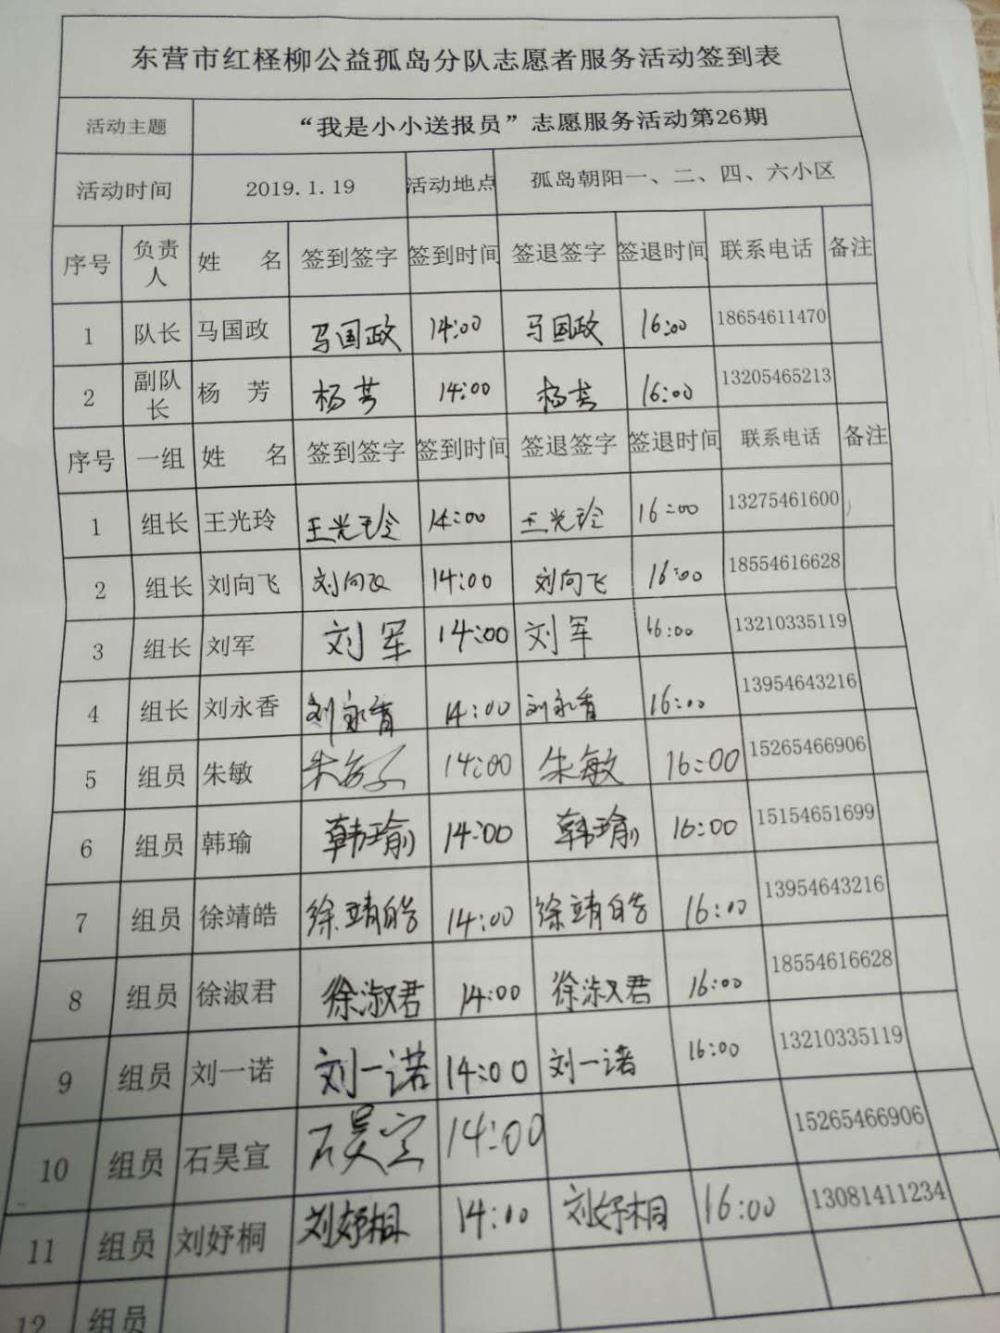 东营市红柽柳公益孤岛分队志愿者服务活动签到表
活动主题 “我是小小送报员”志愿服务活动第26期
活动时间 2019.1.19 活动地点 孤岛朝阳一、二、四、六小区
序号 负责人 姓 名 签到签字 签到时间 签退签字 签退时间 联系电话 备注
1 队长 马国政 马国政 14:00 马国政 16:00 18654611470
2 副队长 杨 芳 杨芳 14:00 杨芳 16:00 13205465213
序号 一组 姓 名 签到签字 签到时间 签退签字 签退时间 联系电话 备注
1 组长 王光玲 王光玲 14:00 王光玲 16:00 13275461600
2 组长 刘向飞 刘向飞 14:00 刘向飞 16:00 18554616628
3 组长 刘军 刘军 14:00 刘军 16:00 13210335119
4 组长 刘永香 刘永香 14:00 刘永香 16:00 13954643216
5 组员 朱敏 朱敏 14:00 朱敏 16:00 15265466906
6 组员 韩瑜 韩瑜 14:00 韩瑜 16:00 15154651699
7 组员 徐靖皓 徐靖皓 14:00 徐靖皓 16:00 13954643216
8 组员 徐淑君 徐淑君 14:00 徐淑君 16:00 18554616628
9 组员 刘一诺 刘一诺 14:00 刘一诺 16:00 13210335119
10 组员 石昊宣 石昊宣 14:00 15265466906
11 组员 刘妤桐 刘妤桐 14:00 刘妤桐 16:00 13081411234
12 组员